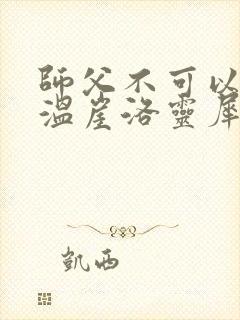 師父不可以
溫崖洛靈犀
凱西